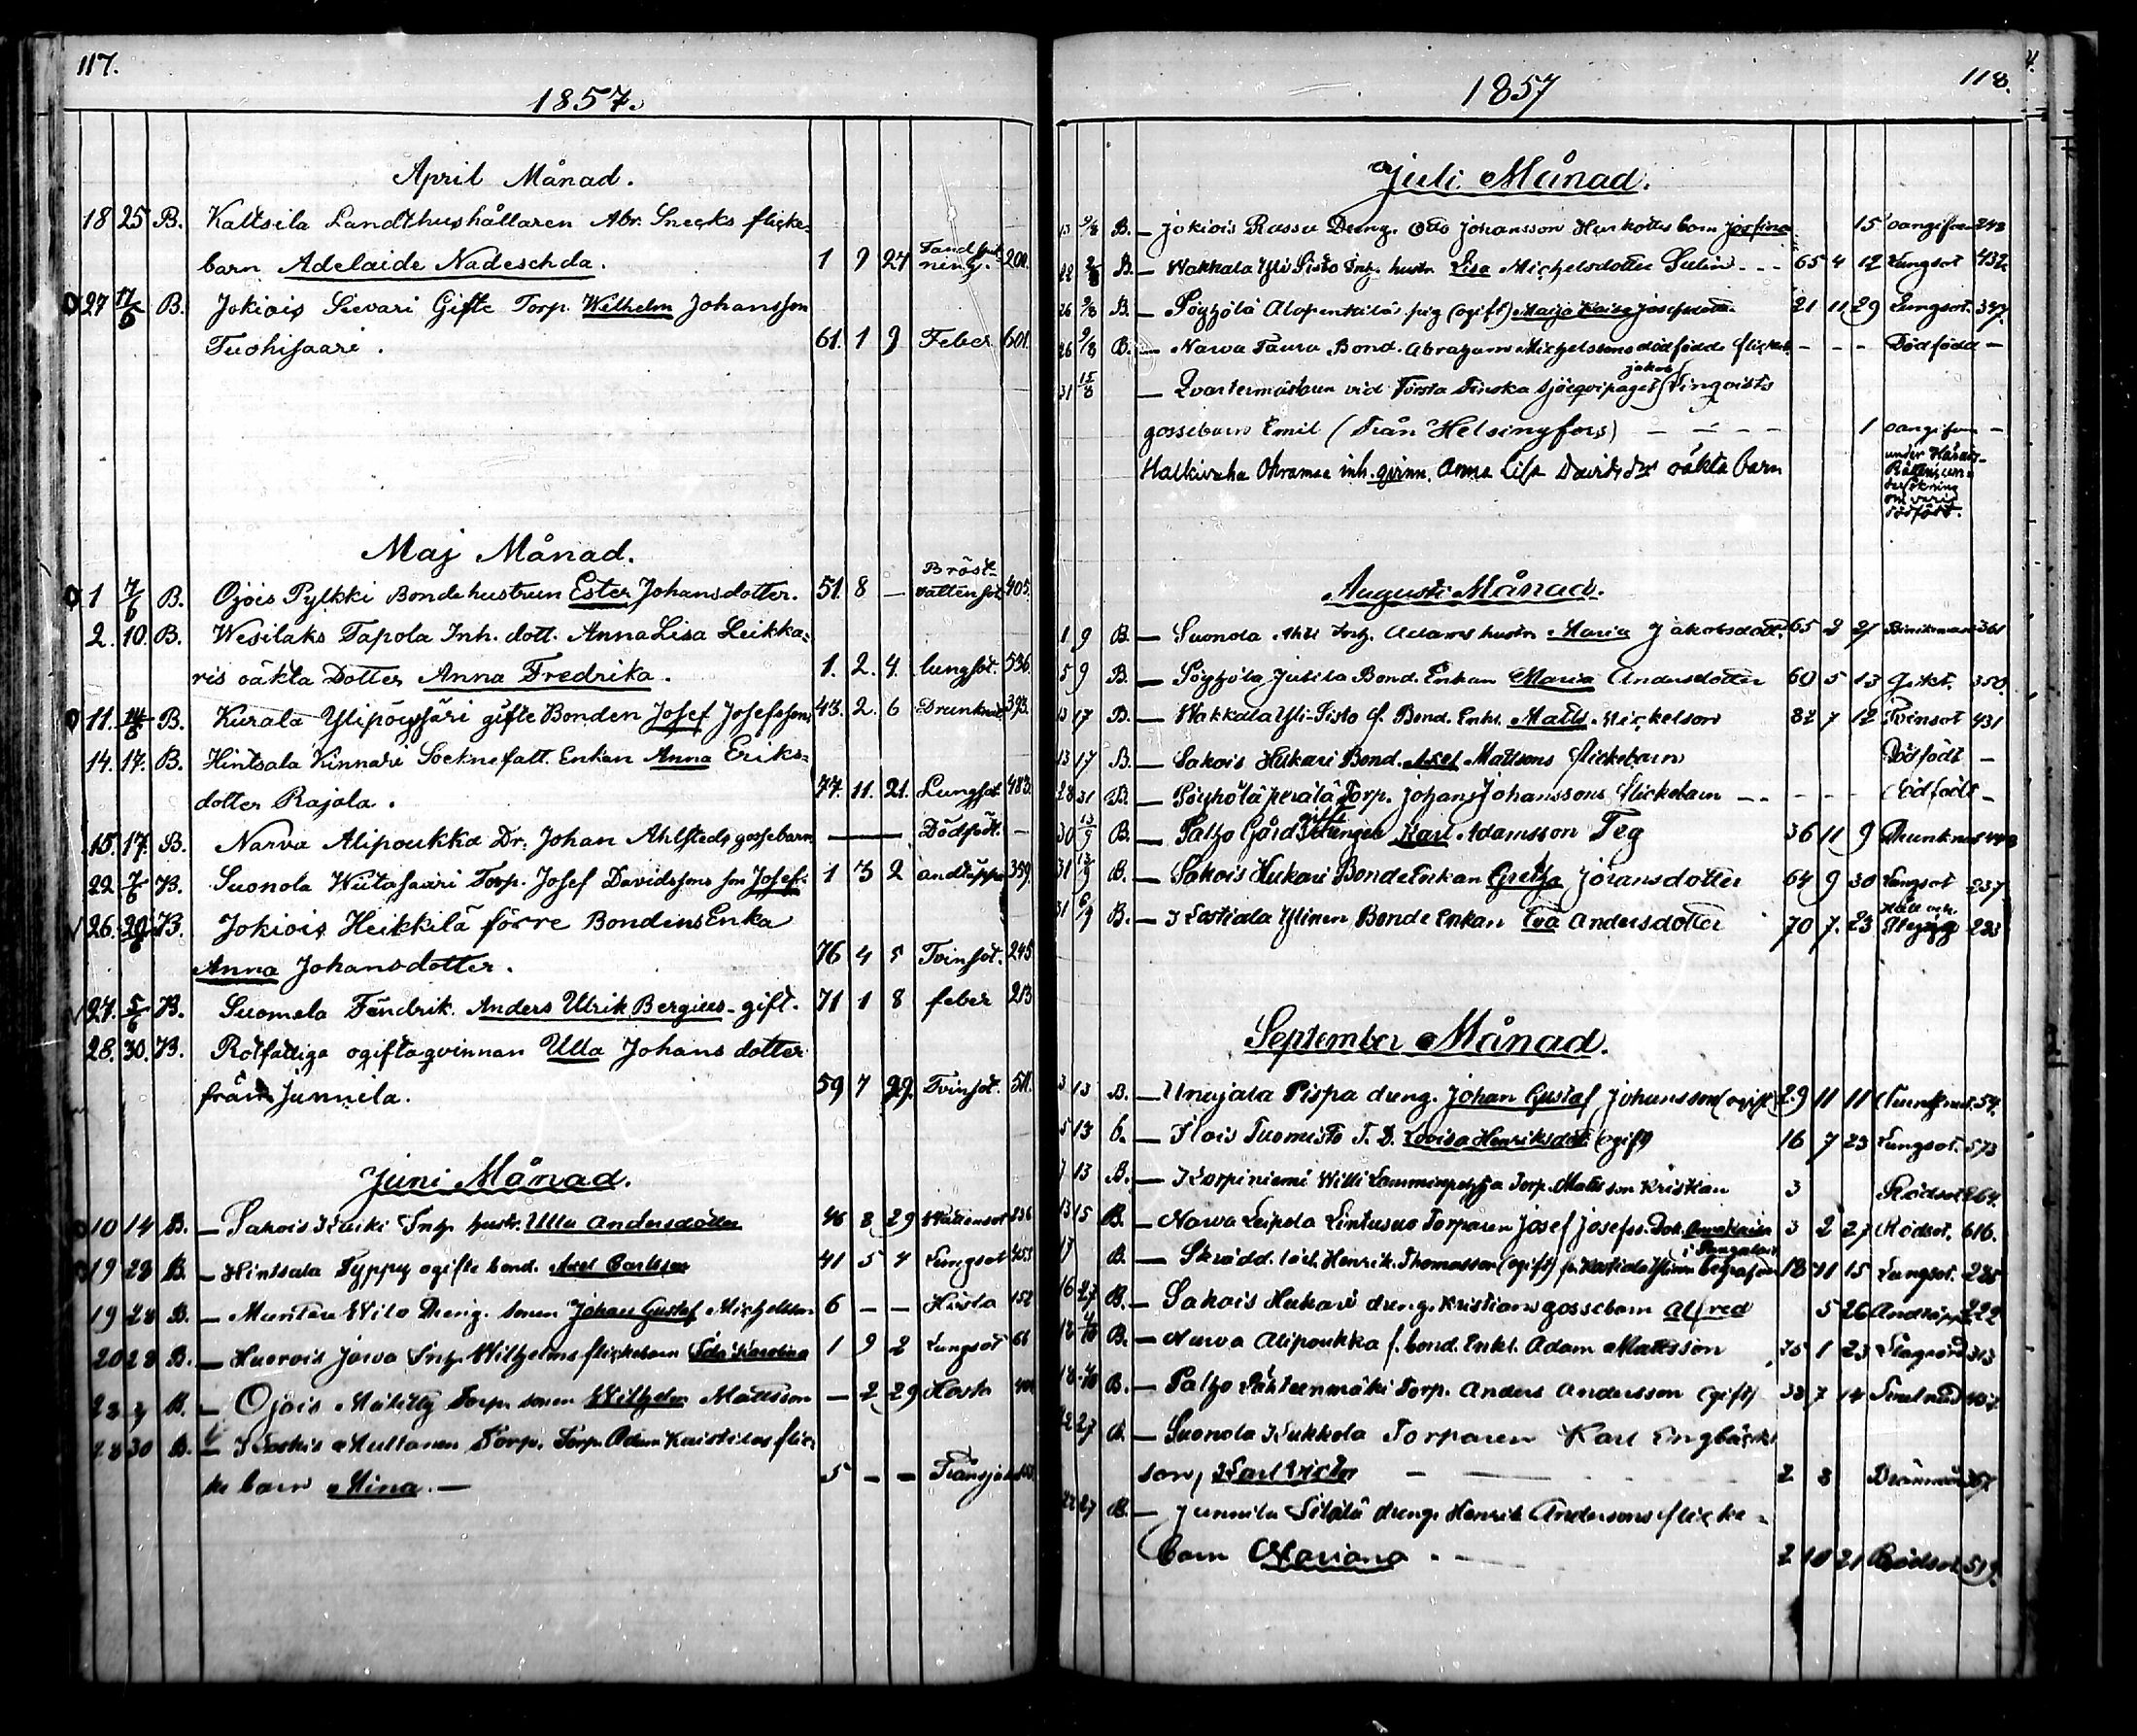 117.
1857.
April Månad.
18 25 B. Kaltsila Landthushållaren Abr. Snecks flicke-
barn Adelaide Nadeschda. 1 9 27 Tandsprickning. 200.
27 17/5 B. Jokiois Sievari Gifte Torp. Wilhelm Johansson
Tuohisaari. 61. 1 9 Feber 601.
Maj Månad.
1 7/6 B. Ojois Pylkki Bondehustrun Ester Johansdotter. 51. 8 – Bröst-vattensot 405.
2. 10. B. Wesilaks Tapola Inh. dott. Anna Lisa Leikka-
ris oäkta Dotter Anna Fredrika. 1. 2. 4. lungsot. 536.
11. B. Kurala Ylipöysäri gifte Bonden Josef Josefsson 43. 2. 6 Drunknat 393.
14. 17. B. Hintsala Kinnari Socknefatt. Enkan Anna Eriks-
dotter Rajala. 77. 11. 21. Lungsot. 483.
15. 17. B. Narva Alipoukka Dr. Johan Ahlsteds gossebarn — Dödfödt. –
22 7/6 B. Suonola Wiitasaari Torp. Josef Davidssons son Josef 1 3 2 andtäppa 359.
26. B. Jokiois Heikkilä förre Bondens Enka
Anna Johansdotter. 76 4 5 Tvinsot. 245
27. 5/6 B. Suomela Fändrik. Anders Ulrik Bergius - gift. 71 1 8 feber 213
28. 30. B. Rotfattiga ogifta qvinnan Ulla Johansdotter
från Junnila. 59 7 29. Tvinsot. 511.
Juni Månad.
10 14 B. – Sakois Kuiki Inh. hustr. Ulla Andersdotter 46 8 29 Wattensot 236
19 28 B. – Hintsala Typpy ogifte bond. Axel Carlsson 41 5 4 Lungsot 453
19 28 B. – Muntera Wilo Dreng. sonen Johan Gustaf Michelsson 6 – – Hosta 152
20 28 B. – Huovois Jowa Inh. Wilhelms flickebarn Ida Karolina 1 9 2 Lungsot 66
23 B. – Ojois Mälilly Torp. sonen Wilhelm Mattsson – 2 29 Hosta
28 30 B. – Multanen Torp. Torp. Adam Kaistilas flic-
ke barn Mina. — 5 – –
118.
1857
Juli Månad.
13 9/8 B. – Jokiois Rassa Dreng. Otto Johansson Herkottes barn Josefina 15 oangifven 248
22 2/8 B. – Wakkala Yli Sisto Inh. hustr. Lisa Michelsdotter Sulin - - - 65 4 12 Lungsot 432
26 9/8 B. – Pöyhölä Alapentilä pig (ogift) Maija Kaisa Josefsdotter 21 11 29 Lungsot. 347.
26 9/8 B. – Narva Taura Bond. Abraham Michelssons dödfödde flickeb. - - - Dödfödd –
31 15/8 – Qvartermästaren vid Första Finska Sjöeqvipaget Jakob Finqvists
gossebarn Emil (Från Helsingfors) – – – – 1 oangifven –
Halkivaha Ohramaa inh. qvinn. Anna Lisa Davidsdr oäkta barn under Härads-Rättens undersökning om varit dödfödt.
Augusti Månad.
1 9 B. – Suonola Inh. Adams hustr. Maria Jakobsdott. 65 2 21 361
5 9 B. – Pöyhölä Jutila Bond. Enkan Maria Andersdotter 60 5 13 Gikt. 350.
13 17 B. – Wakkala Yli-Sisto f. Bond. Enkl. Matts Mickelson 82 7 12 Tvinsot 431
13 17 B. – Sakois Hukari Bond. Axel Mattsons flickebarn Dödfödt –
28 31 B. – Pöyhölä Perälä Torp. Johan Johanssons flickebarn - - - - Dödfödt –
30 13/9 B. – Palho Gård gifte drengen Karl Adamsson Teg 36 11 9 Drunknat
31 13/9 B. – Sakois Hukari Bonde Enkan Greta Johansdotter 64 9 30 Lungsot 237
31 6/9 B. – Kostiala Ylinen Bonde Enkan Eva Andersdotter 70 7. 23 Håll och Stygg 223
September Månad.
3 13 B. – Unajala Pispa dreng. Johan Gustaf Johansson (ogift) 29 11 11 Drunknat. 54.
5 13 B. – Ilois Tuomisto T. D. Lovisa Henriksdott (ogift) 16 7 23 Lungsot. 573
7 13 B. – Korpiniemi Willi Lamminpohja Torp. Matts son Kristian 3 Rödsot 264.
13 15 B. – Narva Leipola Lintusuo Torparen Josef Josefss. Dott. Anna Kaisa 3 2 27 Rödsot. 616.
17 B. – Skrädd. lärl. Henrik Thomasson (ogift) fr. Kostiala Ylinen begrafven i 18 11 15 Lungsot. 225
16 27 B. – Sakois Hukari dreng. Kristians gossebarn Alfred 5 26 Andtäppa 222
18 4/10 B. – Narva Alipoukka f. bond. Enkl. Adam Mattsson 75 1 23 Slag 313
18 4/10 B. – Palho Lähteenmäki Torp. Anders Andersson (gift) 38 7 14
22 27 B. – Suonola Kukkola Torparen Karl Engbäcks
son, Karl Victor – – 2 8 367
22 27 B. – Junnila Sillilä dreng. Henrik Andersons flicke-
barn Mariana. – 2 10 21 Rödsot 519.